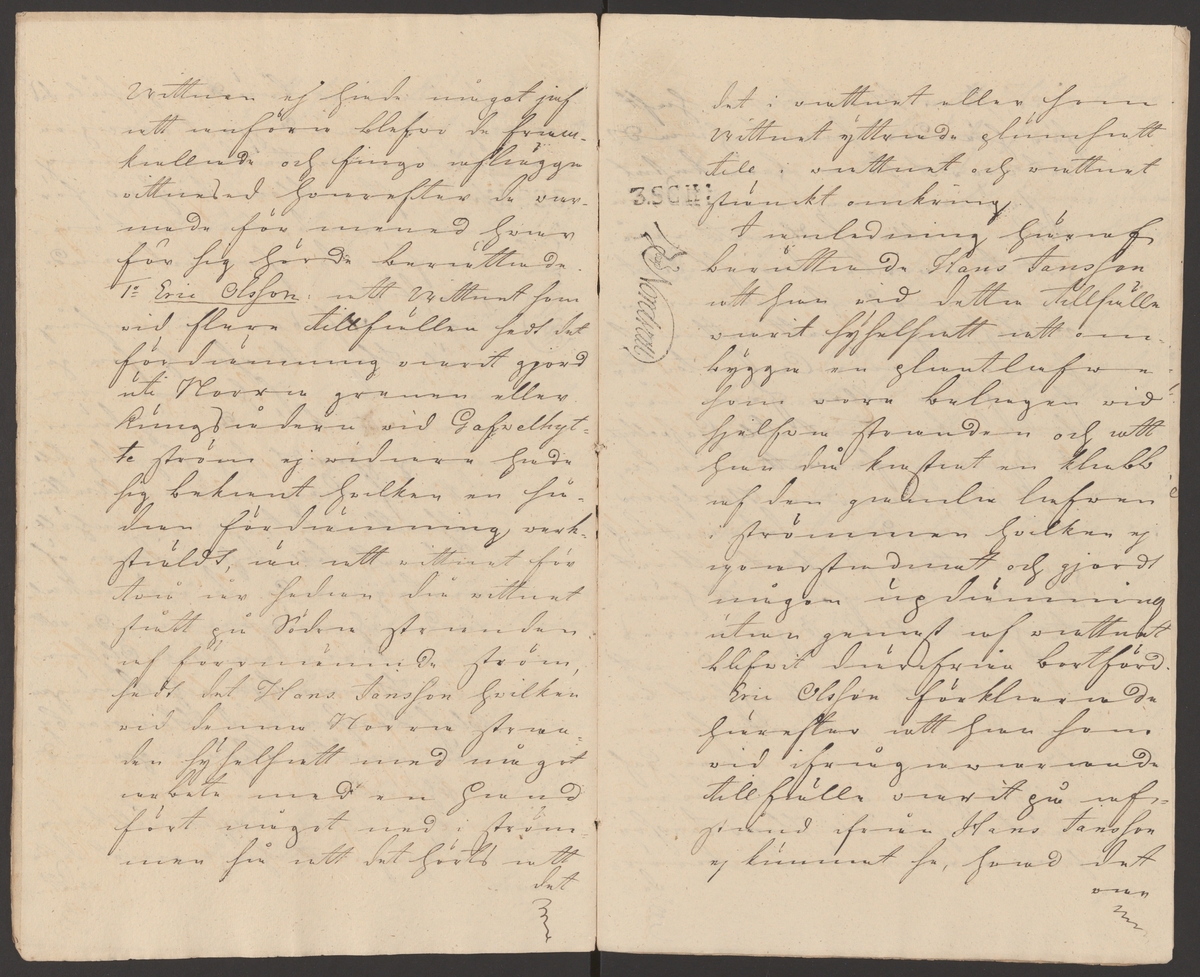 Wittnen ej hade något jäf
att anföra blefvo de fram-
kallade och fingo aflägga
vittnesed hvarefter de var-
nade för mened hvar
för sig hörde berättade.
1º Eric Olsson: att Wittnet som
vid flera tillfällen sedt det
fördämning varit gjord
uti Norra grenen eller
Kungsådern vid Gafvelhyt-
te ström ej vidare hade
sig bekant hvilken en så-
dan fördämning verk-
stäldt, än att vittnet för
två år sedan då vittnet
stått på Södra stranden
af förrnämnde ström,
sedt det Hans Jansson hvilken
vid denna Norra stran-
den sysselsatt med något
arbete med en hand
fört något ned i ström-
men så att det hörts att
det
det i vattnet eller som
Wittnet yttrade plumsatt
till i vattnet och vattnet
stänckt omkring.
3.SCILL:
I anledning häraf
berättade Hans Jansson
att han vid detta tillfälle
varit sysselsatt att om-
bygga en plantlafve
som vore belägen vid
sjelfva stranden och att
han då kastat en klabb
af den gamla lafven
i strömmen hvilken ej
qvarstadnat och gjordt
någon updämning
utan genast af vattnet
blifvit därifrån bortförd.
Eric Olsson förklarade
härefter att han som
vid ifrågavarande
tillfälle varit på af-
stånd ifrån Hans Jansson
ej kunnat se, hvad det
var